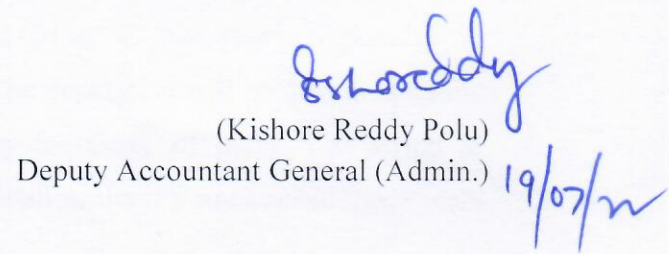 Kishoreddy
(Kishore Reddy Polu)
Deputy Accountant General (Admin.)
19/07/22